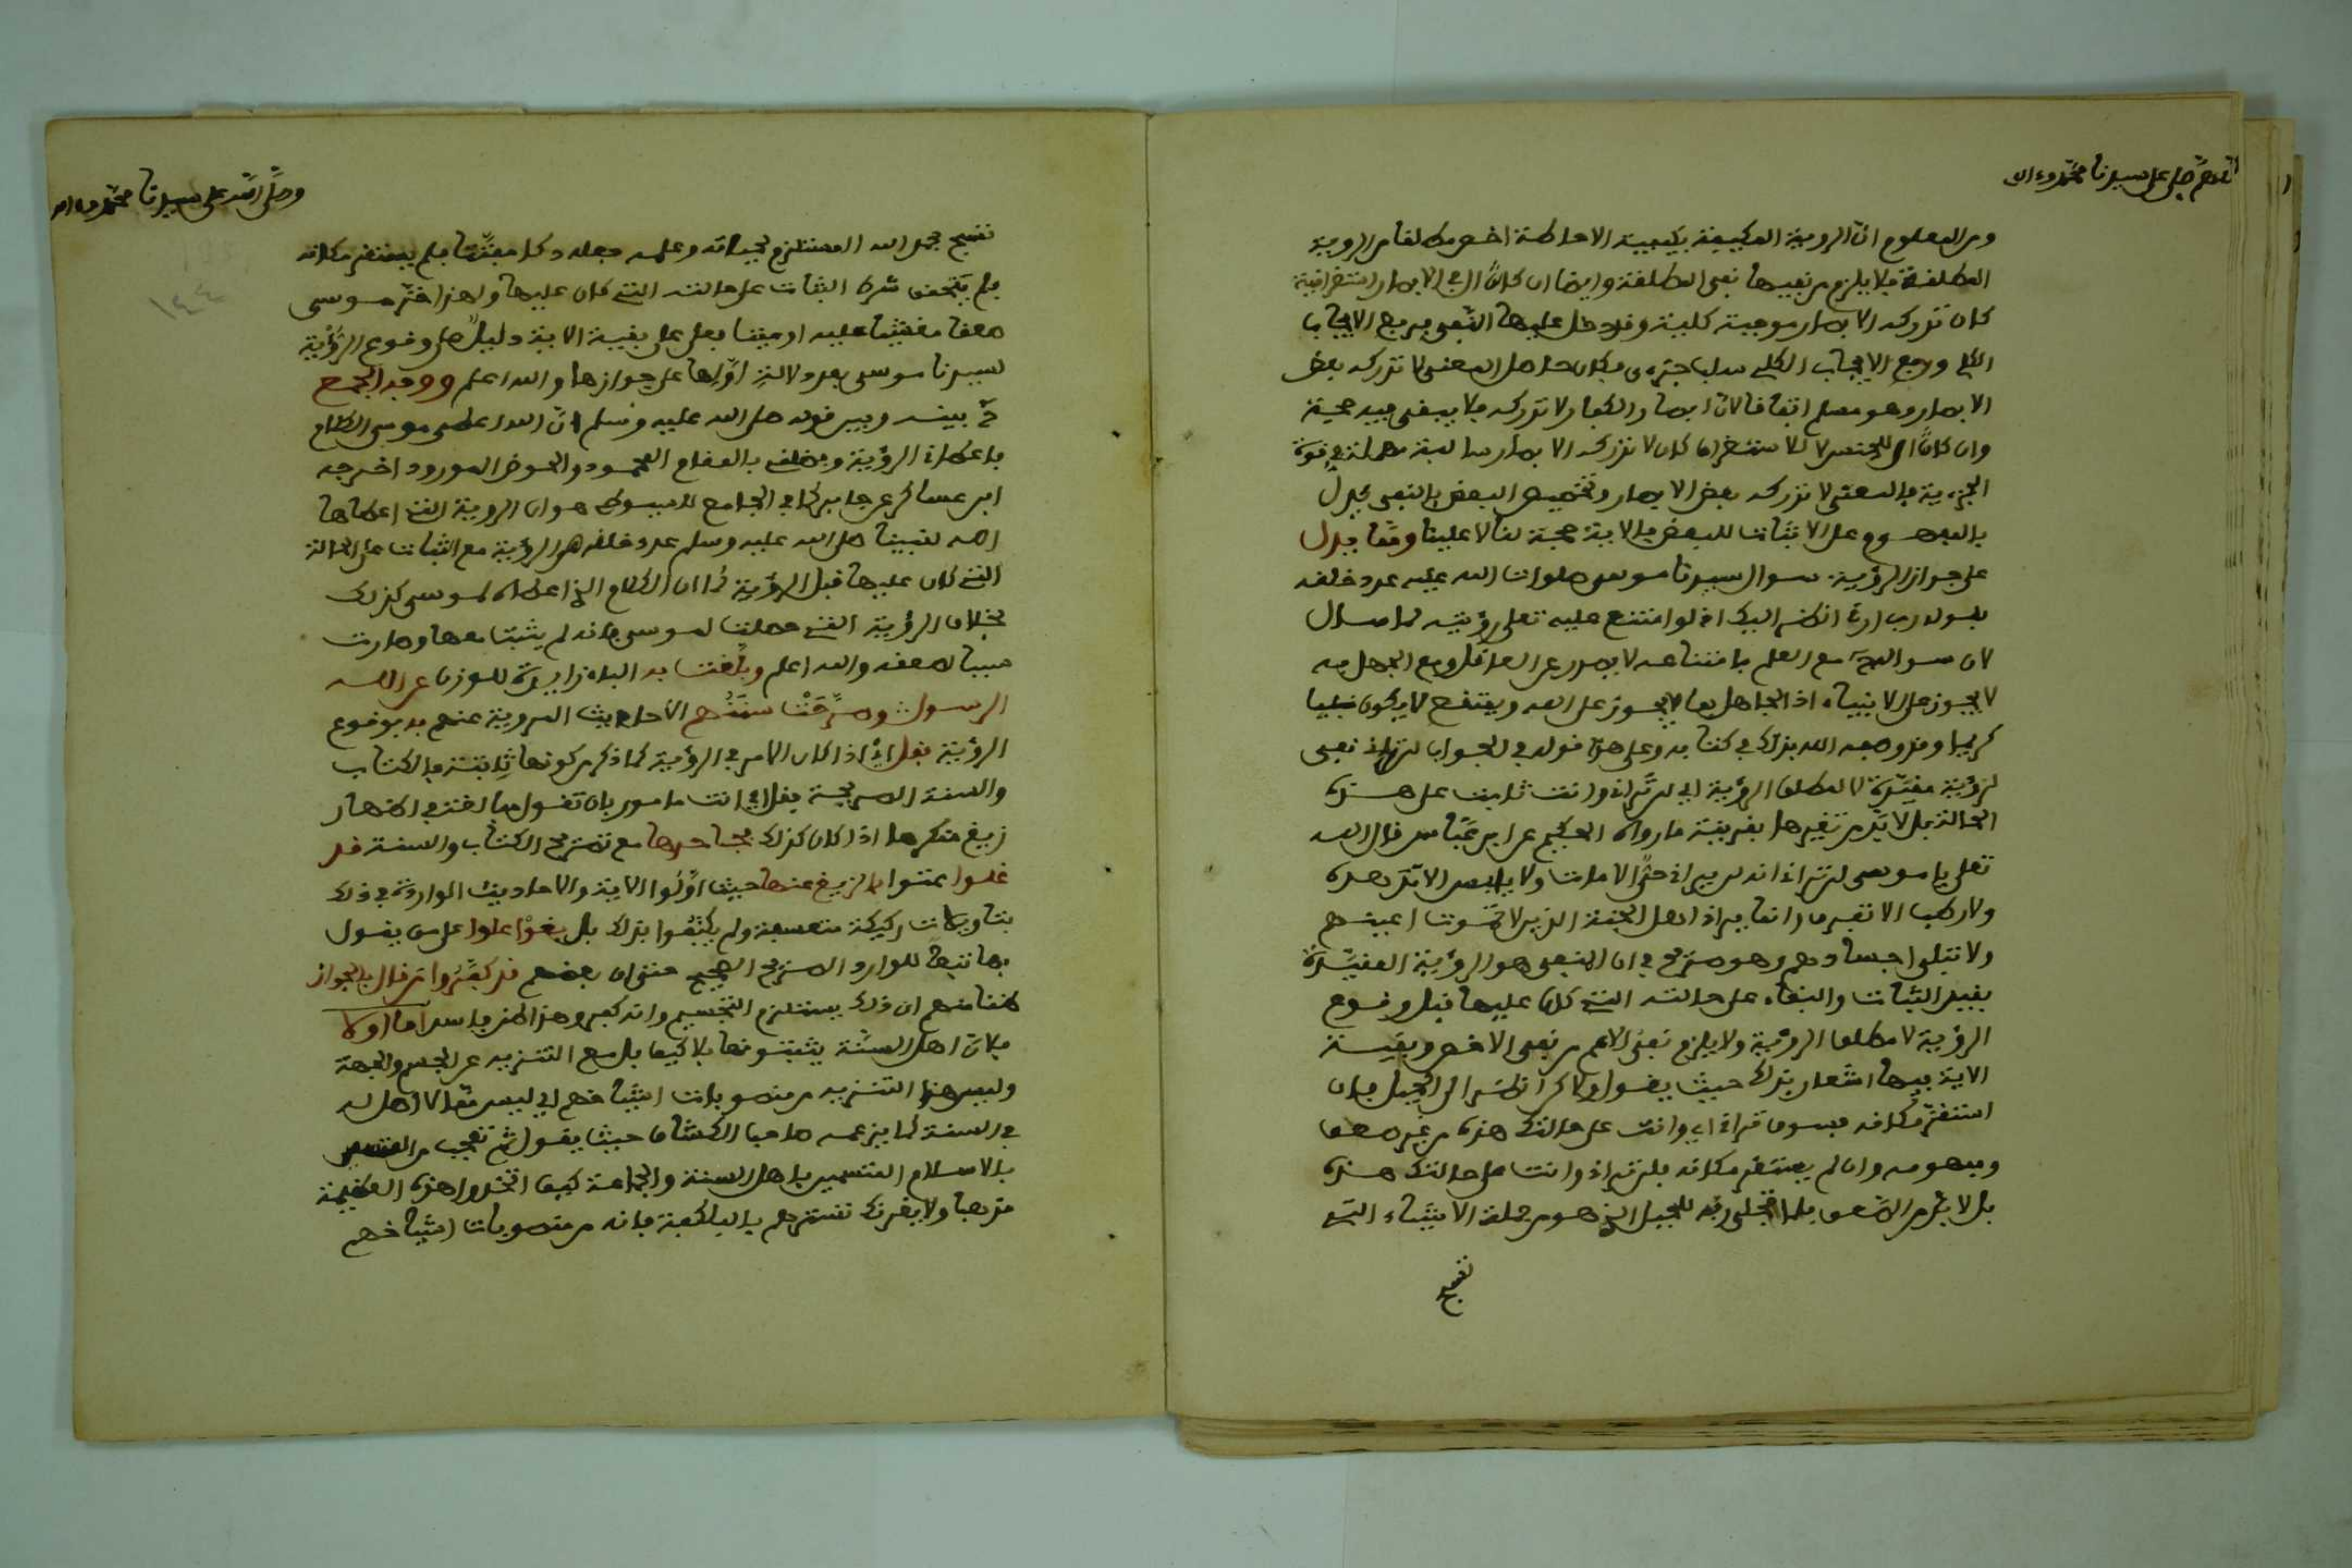 اللهم صل على سيدنا محمد وءال
ومن المعلوم ان الروية المكيفة بكيفية الاحاطة اخص مطلقا من الروية
المطلقة فلا يلزم من نفيها نفي المطلقة وايضا ان كان ال في الابصار استغراقية
كان تدركه الابصار موجبة كلية وقد دخل عليها النفي فرفع الايجاب
الكلي ورفع الايجاب الكلي سلب جزءي فكان حاصل المعنى لا تدركه بعض
الابصار وهو مسلم اتفاقا لان ابصار الكفار لا تدركه فلا يبقى فيه حجة
وان كان ال للجنس لا للاستغراق كان لا تدركه الابصار سالبة مهملة في قوة
الجزءية فالمعنى لا تدركه بعض الابصار وتخصيص البعض بالنفي يدل
بالمفهوم على الاثبات للبعض فالاية حجة لنا لا علينا ومما يدل
على جواز الرؤية سوال سيدنا موسى صلوات الله عليه عدد خلقه
بقوله رب ارني انظر اليك اذ لو امتنع عليه تعلى رؤيته لما سال
لان سواله مع العلم بامتناعه لا يصدر عن العاقل ومع الجهل به
لا يجوز على الانبياء اذ الجاهل بما لا يجوز على الله ويمتنع لا يكون نبيا
كريما وقد وصفه الله بذلك في كتابه وعلى هذا قوله في الجواب لن تراني نفي
لرؤية مقيدة لا لمطلق الرؤية اي لن تراني وانت ثابت على هذه
الحالة بل لا بد من تغيرها بقرينة ما رواه الحكيم عن ابن عباس قال الله
تعلى يا موسى لن تراني انه لن يراني حي الا مات ولا يابس الا تدهده
ولا رطب الا تفرق وانما يراني اهل الجنة الذين لا تموت اعينهم
ولا تبلى اجسادهم وهو صريح في ان المنفي هو الرؤية المقيدة
بقيد الثبات والبقاء على حالته التي كان عليها قبل وقوع
الرؤية لا مطلق الرؤية ولا يلزم نفي الاعم من نفي الاخص وبقية
الاية فيها اشعار بذلك حيث يقول ولاكن انظر الى الجبل فان
استقر مكانه فسوف تراني اي وانت على حالتك هذه من غير صعق
ومفهومه وان لم يستقر مكانه فلن تراني وانت على حالتك هذه
بل لا بد من الصعق فلما تجلى ربه للجبل الذي هو من جملة الاشياء التي
تسبح
وصلى الله على سيدنا محمد وءاله
تسبح بحمد الله المستلزم لحياته وعلمه جعله دكا مفتتا فلم يستقر مكانه
فلم يتحقق شرط الثبات على حالته التي كان عليها ولهذا خر موسى
صعقا مغشيا عليه او ميتا فعلى بقية الاية دليل على وقوع الرؤية
لسيدنا موسى بعد دلالة اولها على جوازها والله اعلم ووجه الجمع
ح بينه وبين قوله صلى الله عليه وسلم ان الله اعطى موسى الكلام
باعطاء الرؤية وفضلني بالمقام المحمود والحوض المورود اخرجه
ابن عساكر عن جابر كما في الجامع للسيوطي هو ان الروية التي اعطاها
الله لنبينا صلى الله عليه وسلم عدد خلقه هي الرؤية مع الثبات على الحالة
التي كان عليها قبل الرؤية كما ان الكلام الذي اعطاه لموسى كذلك
بخلاف الرؤية التي حصلت لموسى فانه لم يثبت معها وصارت
سببا لصعقه والله اعلم وبلغت به الباء زايدة للوزن عن الله
الرسول وصرحت سنتهم الاحاديث المروية عنهم به بوقوع
الرؤية فقل اي اذا كان الامر في الرؤية كما ذكر من كونها ثابتة بالكتاب
والسنة الصريحة فقل اي انت مامور بان تقول مبالغة في اظهار
زيغ منكرها اذا كان كذلك بجاحدها مع تصريح الكتاب والسنة قد
غلوا عتوا بالزيغ عنها حيث اولوا الاية والاحاديث الواردة في ذلك
بتاويلات ركيكة متعسفة ولم يكتفوا بذلك بل بغوا علوا على من يقول
بها تبعا للوارد الصريح الصحيح حتى ان بعضهم قد كفروا من قال بالجواز
ظنا منهم ان ذلك يستلزم التجسيم وانه كفر وهذا الظن فاسد اما اولا
فلان اهل السنة يثبتونها بلا كيف بل مع التنزيه عن الجسم والجهة
وليس هذا التنزيه من منصوبات اشياخهم اي ليس مما لا اصل له
في السنة كما يزعمه صاحب الكشاف حيث يقول ثم تعجب من المتسمين
بالاسلام المتسمين باهل السنة والجماعة كيف اتخذوا هذه العظيمة
مذهبا ولا يغرنك تسترهم بالبلكفة فانه من منصوبات اشياخهم